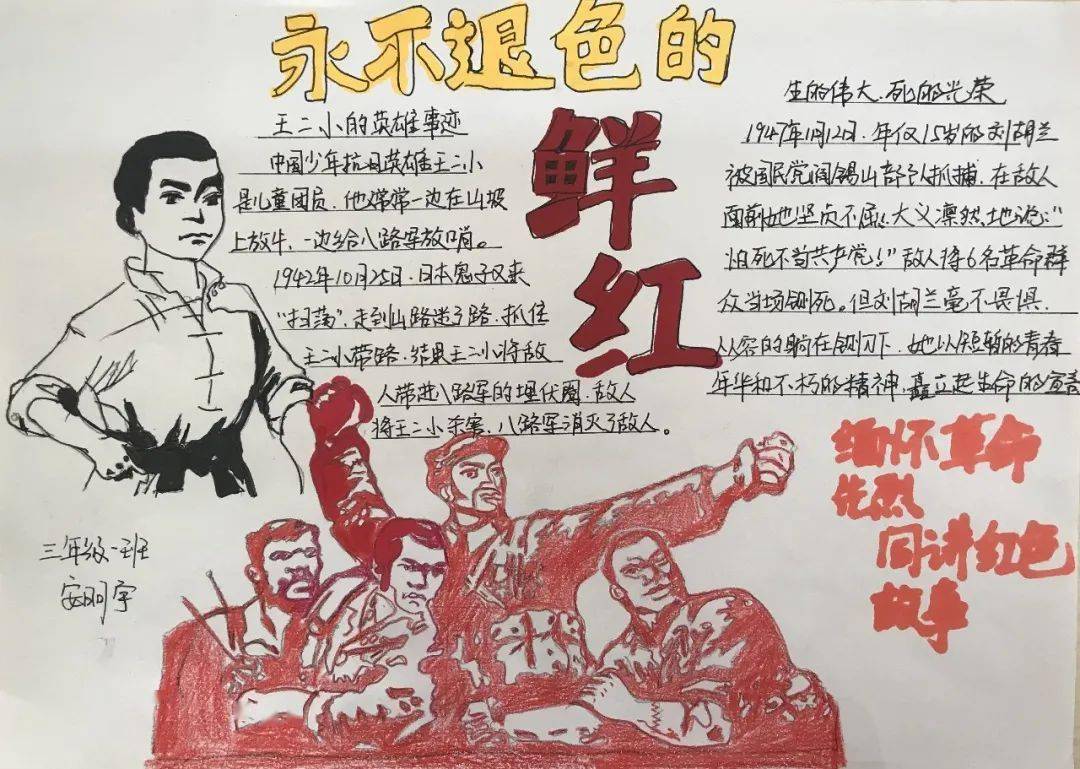 永不退色的
鲜
红
王二小的英雄事迹
中国少年抗日英雄王二小
是儿童团员，他常常一边在山坡
上放牛，一边给八路军放哨。
1942年10月25日，日本鬼子又来
"扫荡"，走到山路迷了路，抓住
王二小带路，结果王二小将敌
人带进八路军的埋伏圈，敌人
将王二小杀害，八路军消灭了敌人。
生的伟大，死的光荣
1947年1月12日，年仅15岁的刘胡兰
被国民党阎锡山部队抓捕，在敌人
面前她坚贞不屈，大义凛然地说："
怕死不当共产党！"敌人将6名革命群
众当场铡死。但刘胡兰毫不畏惧，
从容的躺在铡刀下，她以短暂的青春
年华和不朽的精神，矗立起生命的宣言
缅怀革命
先烈
同讲红色
故事
三年级一班